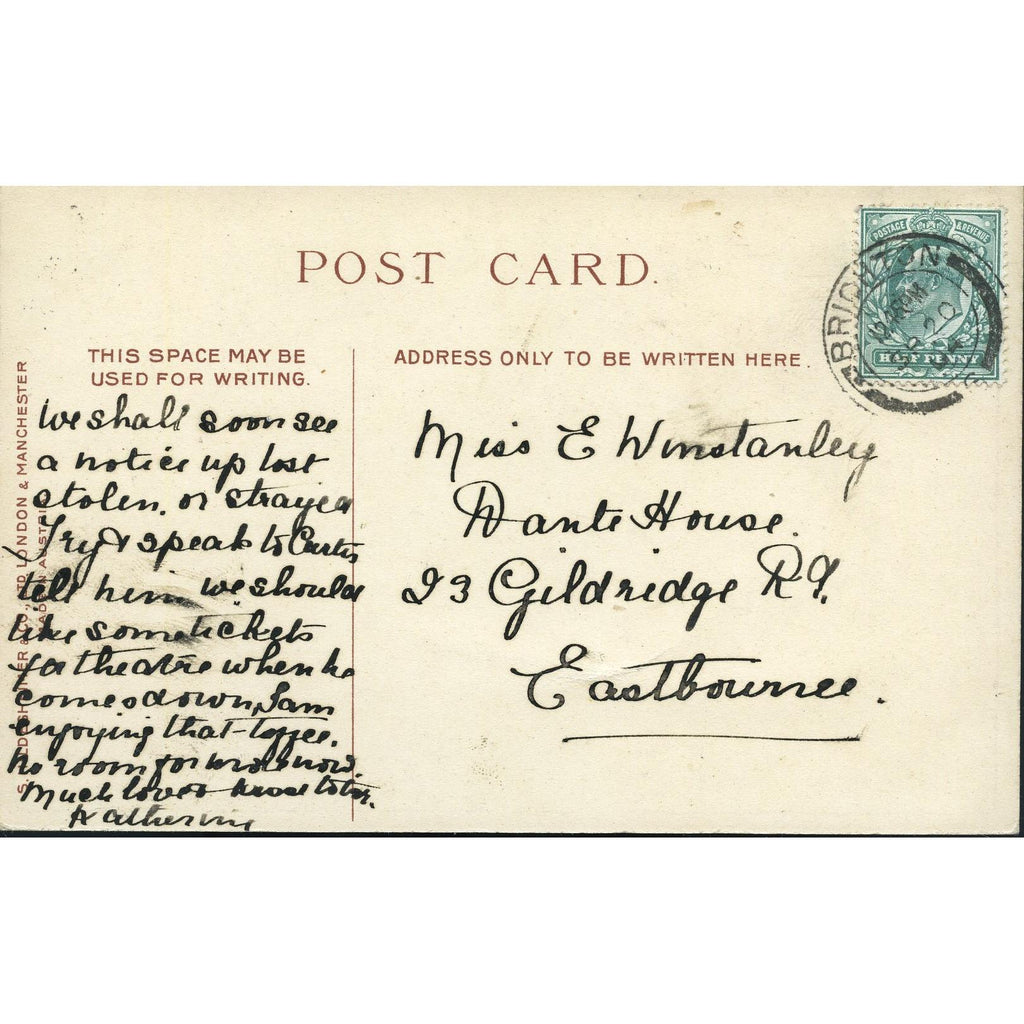 POST CARD.
POSTAGE & REVENUE
HALF PENNY
BRIGHTON
THIS SPACE MAY BE
USED FOR WRITING.
ADDRESS ONLY TO BE WRITTEN HERE.
We shall soon see
a notice up lost
stolen. or strayed
Try & speak to Curtis
tell him we should
like some tickets
for theatre when he
comes down, I am
enjoying that toffee.
No room for more now.
Much love
Katherine
Miss E Winstanley
Dante House.
23 Gildridge Rd.
Eastbourne.
LTD LONDON & MANCHESTER